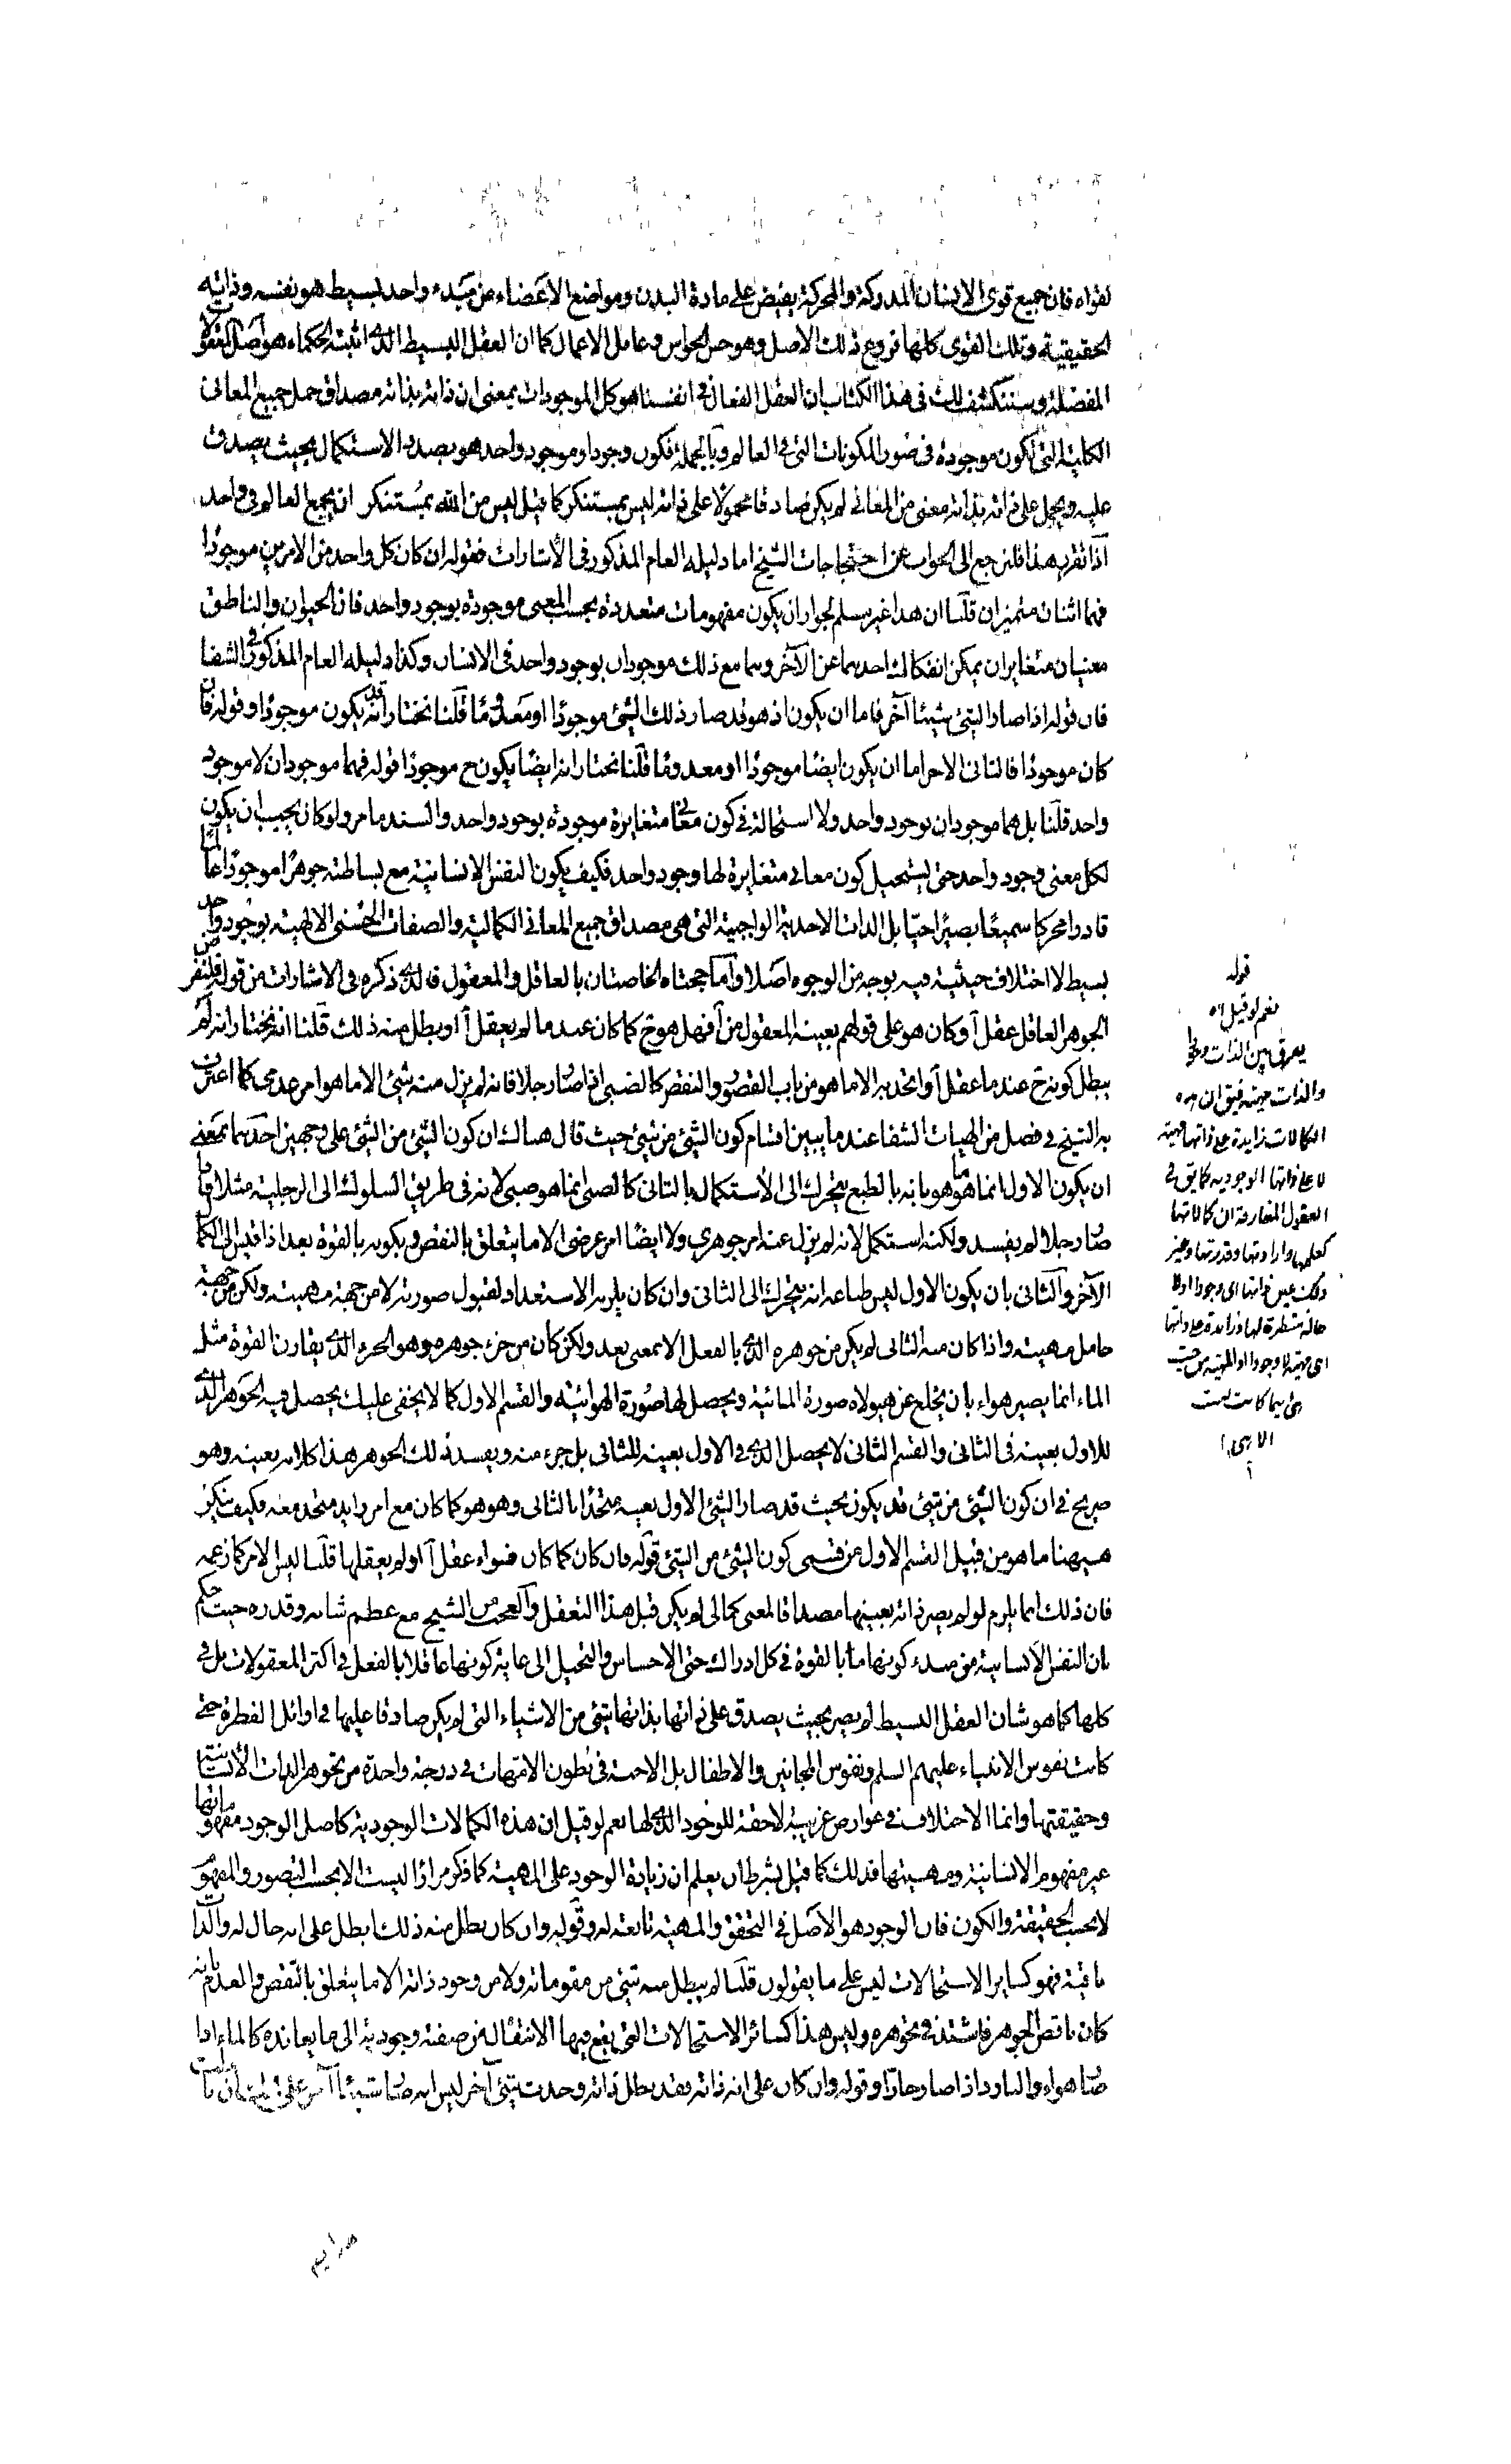 لقواه فان جميع قوى الانسان المدركة والمحركة يفيض على مادة البدن ومواضع الاعضاء من مبدء واحد بسيط هو نفسه وذاته
الحقيقية وتلك القوى كلها فروع ذلك الاصل وهو حس الحواس وعامل الاعمال كما ان العقل البسيط الذي اثبته الحكماء هو اصل المعقولات
المفصلة وسننكشف لك في هذا الكتاب ان العقل الفعال في انفسنا هو كل الموجودات بمعنى ان ذاته بذاته مصداق حمل جميع المعاني
الكلية التي تكون موجودة في صور المكونات التي في العالم وبالجملة فكون وجود او موجود واحد هو بصدد الاستكمال بحيث يصدق
عليه ويحمل على ذاته بذاته معنى من المعاني لم يكن صادقا محمولا على ذاته ليس بمستنكر كما قيل ليس من الله بمستنكر ان يجمع العالم في واحد
اذا تقرر هذا فلنرجع الى الجواب عن احتجاجات الشيخ اما دليله العام المذكور في الاشارات فقوله ان كان كل واحد من الامرين موجودا
فهما اثنان متميزان قلنا ان هذا غير مسلم لجواز ان يكون مفهومات متعددة بحسب المعنى موجودة بوجود واحد فان الحيوان والناطق
معنيان متغايران يمكن انفكاك احدهما عن الآخر وهما مع ذلك موجودان بوجود واحد في الانسان وكذا دليله العام المذكور في الشفا
فان قوله اذا صار الشيئ شيئا آخر فاما ان يكون اذ هو قد صار ذلك الشيئ موجودا او معدوما قلنا نختار انه يكون موجودا وقوله فان
كان موجودا فالثاني الاخر اما ان يكون ايضا موجودا او معدوما قلنا نختار انه ايضا يكون ح موجودا قوله فهما موجودان لا موجود
واحد قلنا بل هما موجودان بوجود واحد ولا استحالة في كون معاني متغايرة موجودة بوجود واحد والسند ما مر ولو كان يجب ان يكون
لكل معنى وجود واحد حتى يستحيل كون معاني متغايرة لها وجود واحد فكيف يكون النفس الانسانية مع بساطته جوهرا موجودا عالما
قادرا محركا سميعا بصيرا حيا بل الذات الاحدية الواجبية التي هي مصداق جميع المعاني الكمالية والصفات الحسنى الالهية بوجود واحد
بسيط لا اختلاف حيثية فيه بوجه من الوجوه اصلا واما حجتاه الخاصتان بالعاقل والمعقول فالذي ذكره في الاشارات من قوله فلنفرض
الجوهر العاقل عقل آ وكان هو على قولهم بعينه المعقول من آ فهل هو ح كما كان عند ما لم يعقل آ او بطل منه ذلك قلنا انه نختار انه لم
يبطل كونه ح عند ما عقل آ واتحد به الا ما هو من باب القصور والنقص كالصبي اذا صار رجلا فانه لم يزل منه شيئ الا ما هو امر عدمي كما اعترف
به الشيخ في فصل من الهيات الشفا عند ما يبين اقسام كون الشيئ من شيئ حيث قال هناك ان كون الشيئ من الشيئ على وجهين احدهما بمعنى
ان يكون الاول انما هو ما هو بانه بالطبع يتحرك الى الاستكمال بالثاني كالصبي انما هو صبي لانه في طريق السلوك الى الرجلية مثلا فاذا
صار رجلا لم يفسد ولكنه استكمل لانه لم يزل عنه امر جوهري ولا ايضا امر عرضي الا ما يتعلق بالنقص وبكونه بالقوة بعد اذا قيس الى الكمال
الآخر والثاني بان يكون الاول ليس طباعه انه يتحرك الى الثاني وان كان يلزمه الاستعداد لقبول صورته لا من جهة مهيته ولكن من جهة
حامل مهيته واذا كان منه الثاني لم يكن من جوهره الذي بالفعل الا بمعنى بعد ولكن كان من جزء جوهره وهو الجزء الذي يقارن القوة مثل
الماء انما يصير هواء بان يخلع عن هيولاه صورة المائية ويحصل لها صورة الهوائية والقسم الاول كما لا يخفى عليك يحصل فيه الجوهر الذي
للاول بعينه في الثاني والقسم الثاني لا يحصل الذي في الاول بعينه للثاني بل جزء منه ويفسد ذلك الجوهر هذا كلامه بعينه وهو
صريح في ان كون الشيئ من شيئ قد يكون بحيث قد صار الشيئ الاول بعينه متحدا بالثاني وهو هو كما كان مع امر زايد متحد معه فكيف ينكر
هيهنا ما هو من قبيل القسم الاول من قسمي كون الشيئ من الشيئ قوله فان كان كما كان فسواء عقل آ او لم يعقلها قلنا ليس الامر كما زعمه
فان ذلك انما يلزم لو لم يصر ذاته بعينها مصداقا لمعنى كمالي لم يكن قبل هذا التعقل والعجب من الشيخ مع عظم شانه وقدره حيث حكم
بان النفس الانسانية من مبدء كونها ما بالقوة في كل ادراك حتى الاحساس والتخيل الى غاية كونها عاقلا بالفعل في اكثر المعقولات بل في
كلها كما هو شان العقل البسيط لم يصر بحيث يصدق على ذاتها بذاتها شيئ من الاشياء التي لم يكن صادقا عليها في اوائل الفطرة حتى
كانت نفوس الانبياء عليهم السلم ونفوس المجانين والاطفال بل الاجنة في بطون الامهات في درجة واحدة من تجوهر الذات الانسانية
وحقيقتها وانما الاختلاف في عوارض غريبة لاحقة للوجود الذي لها نعم لو قيل ان هذه الكمالات الوجودية كاصل الوجود مفهوماتها
غير مفهوم الانسانية ومهيتها فذلك كما قيل بشرط ان يعلم ان زيادة الوجود على المهية كما ذكر مرارا ليست الا بحسب التصور والمفهوم
لا بحسب الحقيقة والكون فان الوجود هو الاصل في التحقق والمهية تابعة له وقوله وان كان بطل منه ذلك ابطل على انه حال له والذات
باقية فهو كسائر الاستحالات ليس على ما يقولون قلنا لم يبطل منه شيئ من مقوماته ولا من وجود ذاته الا ما يتعلق بالنقص والعدم بانه
كان ناقص الجوهر فاشتد في تجوهره وليس هذا كسائر الاستحالات التي يقع فيها الانتقال من صفة وجودية الى ما يعانده كالماء اذا
صار هواء والبارد اذا صار حارا وقوله وان كان على انه ذاته فقد بطل ذاته وحدث شيئ آخر ليس انه صار شيئا آخر على
قوله
نعم لو قيل اه
يعرف بين الذات
والذات
الكمالات زايدة على ذاتها مهية
لا على ذاتها الوجودية كما يق في
العقول المفارقة ان كمالاتها
كعلمها وارادتها وقدرتها وغير
ذلك عين ذاتها اي وجودا اذ لا
حالة منتظرة لها وزايدة على ذاتها
اي مهية لا وجودا اذ المهية من حيث
هي ليست
الا هي